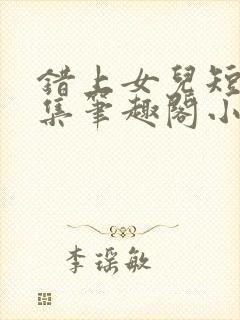 錯上女兒短
集筆趣閣小
李琛敏